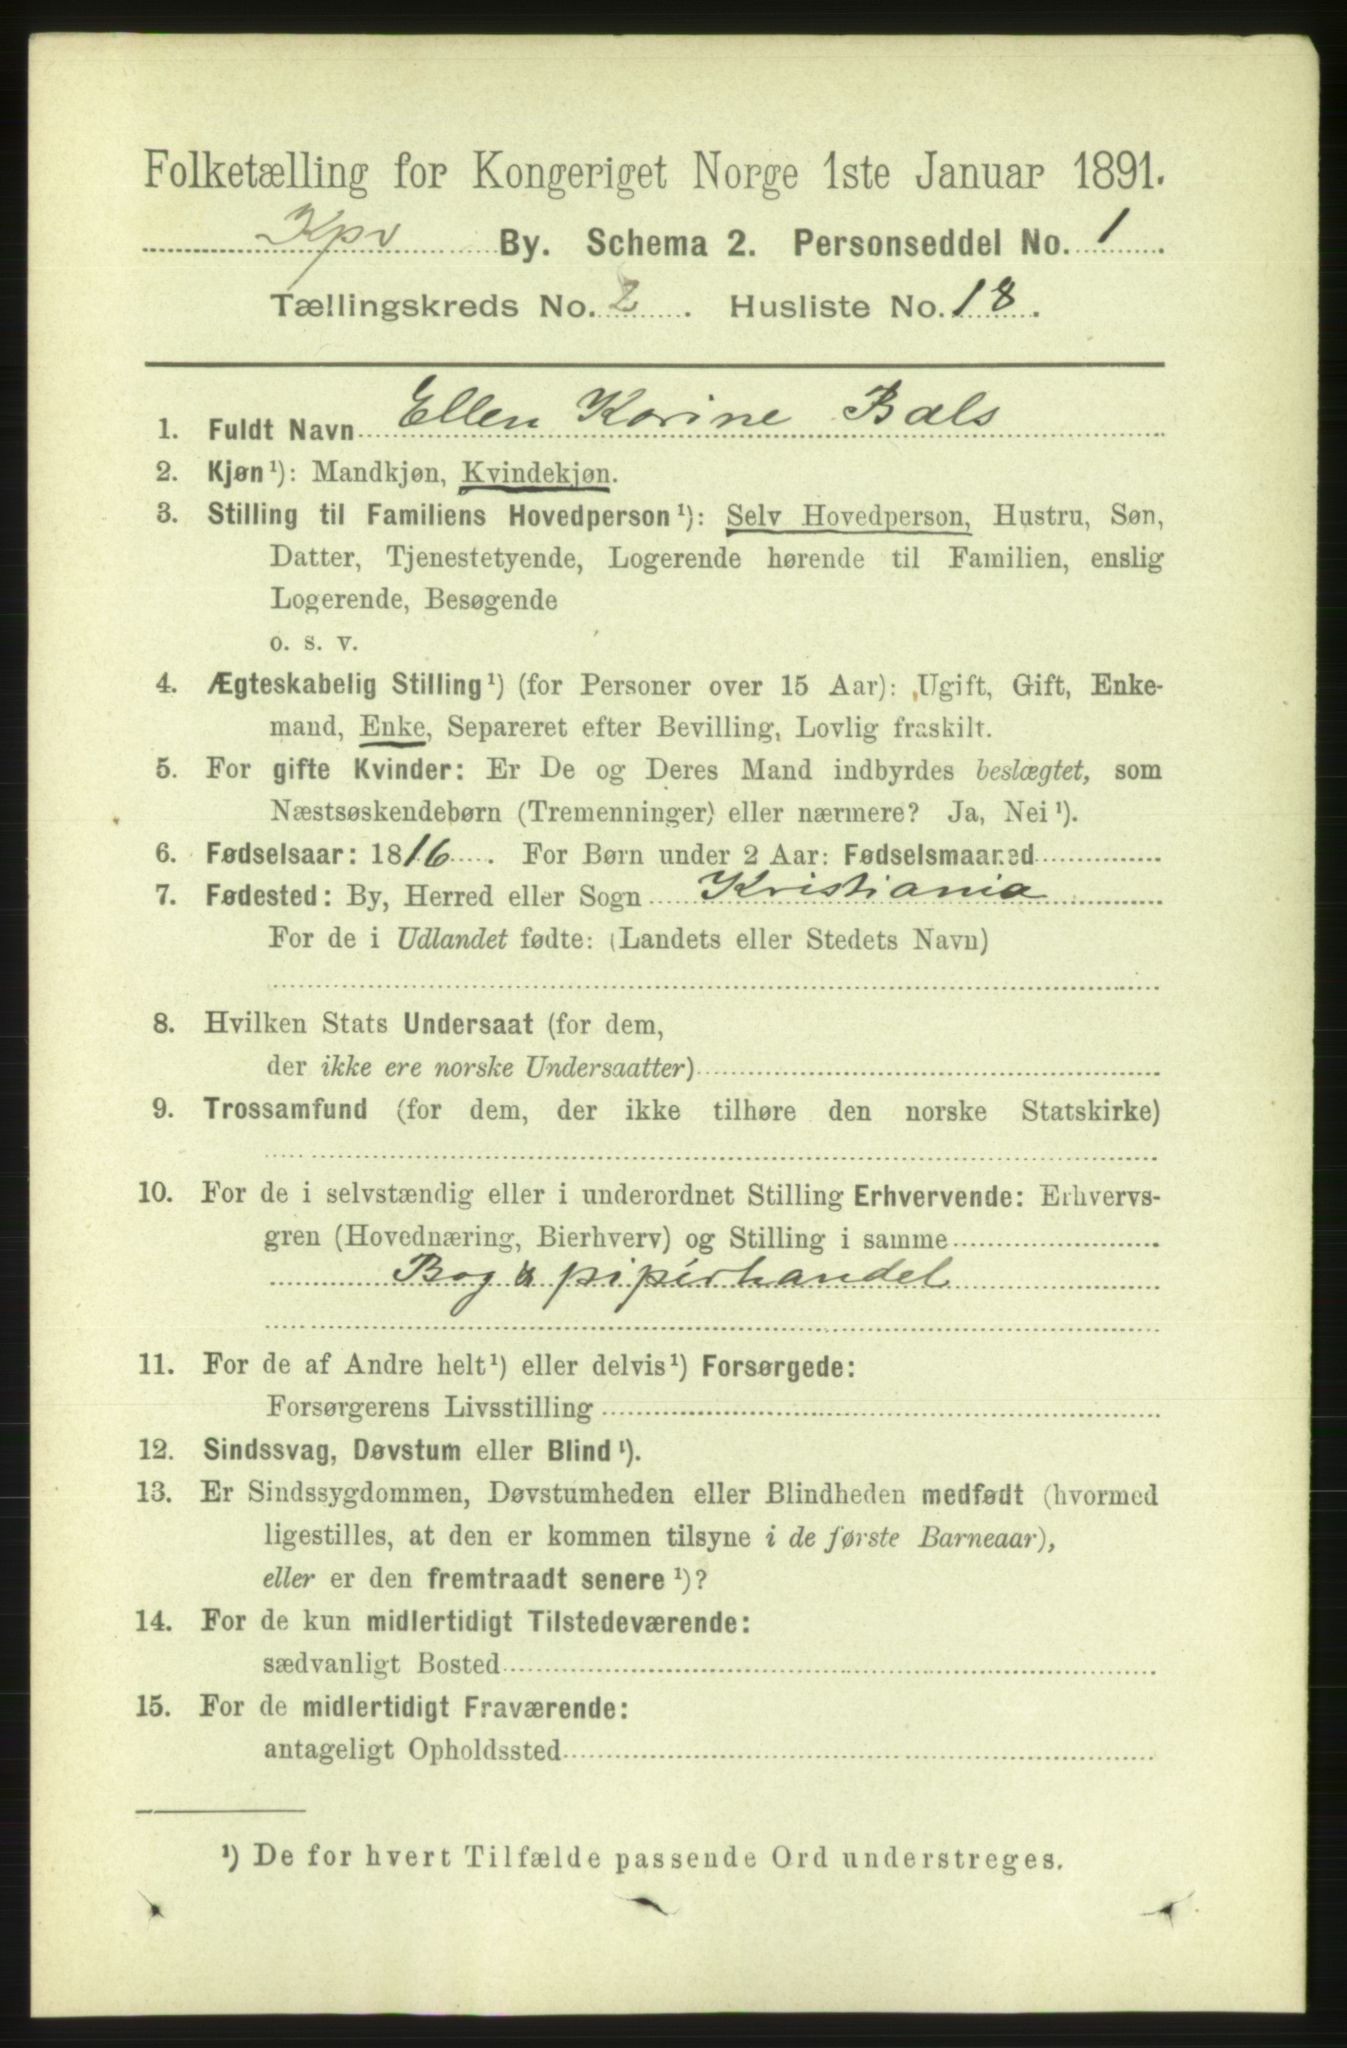 Folketælling for Kongeriget Norge 1ste Januar 1891.
Kpv By. Schema 2. Personseddel No. 1.
Tællingskreds No. 2. Husliste No. 18.
1. Fuldt Navn Ellen Karine Bals
2. Kjøn¹): Mandkjøn, Kvindekjøn.
3. Stilling til Familiens Hovedperson¹): Selv Hovedperson, Hustru, Søn,
Datter, Tjenestetyende, Logerende hørende til Familien, enslig
Logerende, Besøgende
o. s. v.
4. Ægteskabelig Stilling¹) (for Personer over 15 Aar): Ugift, Gift, Enke-
mand, Enke, Separeret efter Bevilling, Lovlig fraskilt.
5. For gifte Kvinder: Er De og Deres Mand indbyrdes beslægtet, som
Næstsøskendebørn (Tremenninger) eller nærmere? Ja, Nei¹).
6. Fødselsaar: 1816. For Børn under 2 Aar: Fødselsmaaned
7. Fødested: By, Herred eller Sogn Kristiania
For de i Udlandet fødte: (Landets eller Stedets Navn)
8. Hvilken Stats Undersaat (for dem,
der ikke ere norske Undersaatter)
9. Trossamfund (for dem, der ikke tilhøre den norske Statskirke)
10. For de i selvstændig eller i underordnet Stilling Erhvervende: Erhvervs-
gren (Hovednæring, Bierhverv) og Stilling i samme
Bog & pipérhandel
11. For de af Andre helt¹) eller delvis¹) Forsørgede:
Forsørgerens Livsstilling
12. Sindssvag, Døvstum eller Blind¹).
13. Er Sindssygdommen, Døvstumheden eller Blindheden medfødt (hvormed
ligestilles, at den er kommen tilsyne i de første Barneaar),
eller er den fremtraadt senere¹)?
14. For de kun midlertidigt Tilstedeværende:
sædvanligt Bosted
15. For de midlertidigt Fraværende:
antageligt Opholdssted
¹) De for hvert Tilfælde passende Ord understreges.